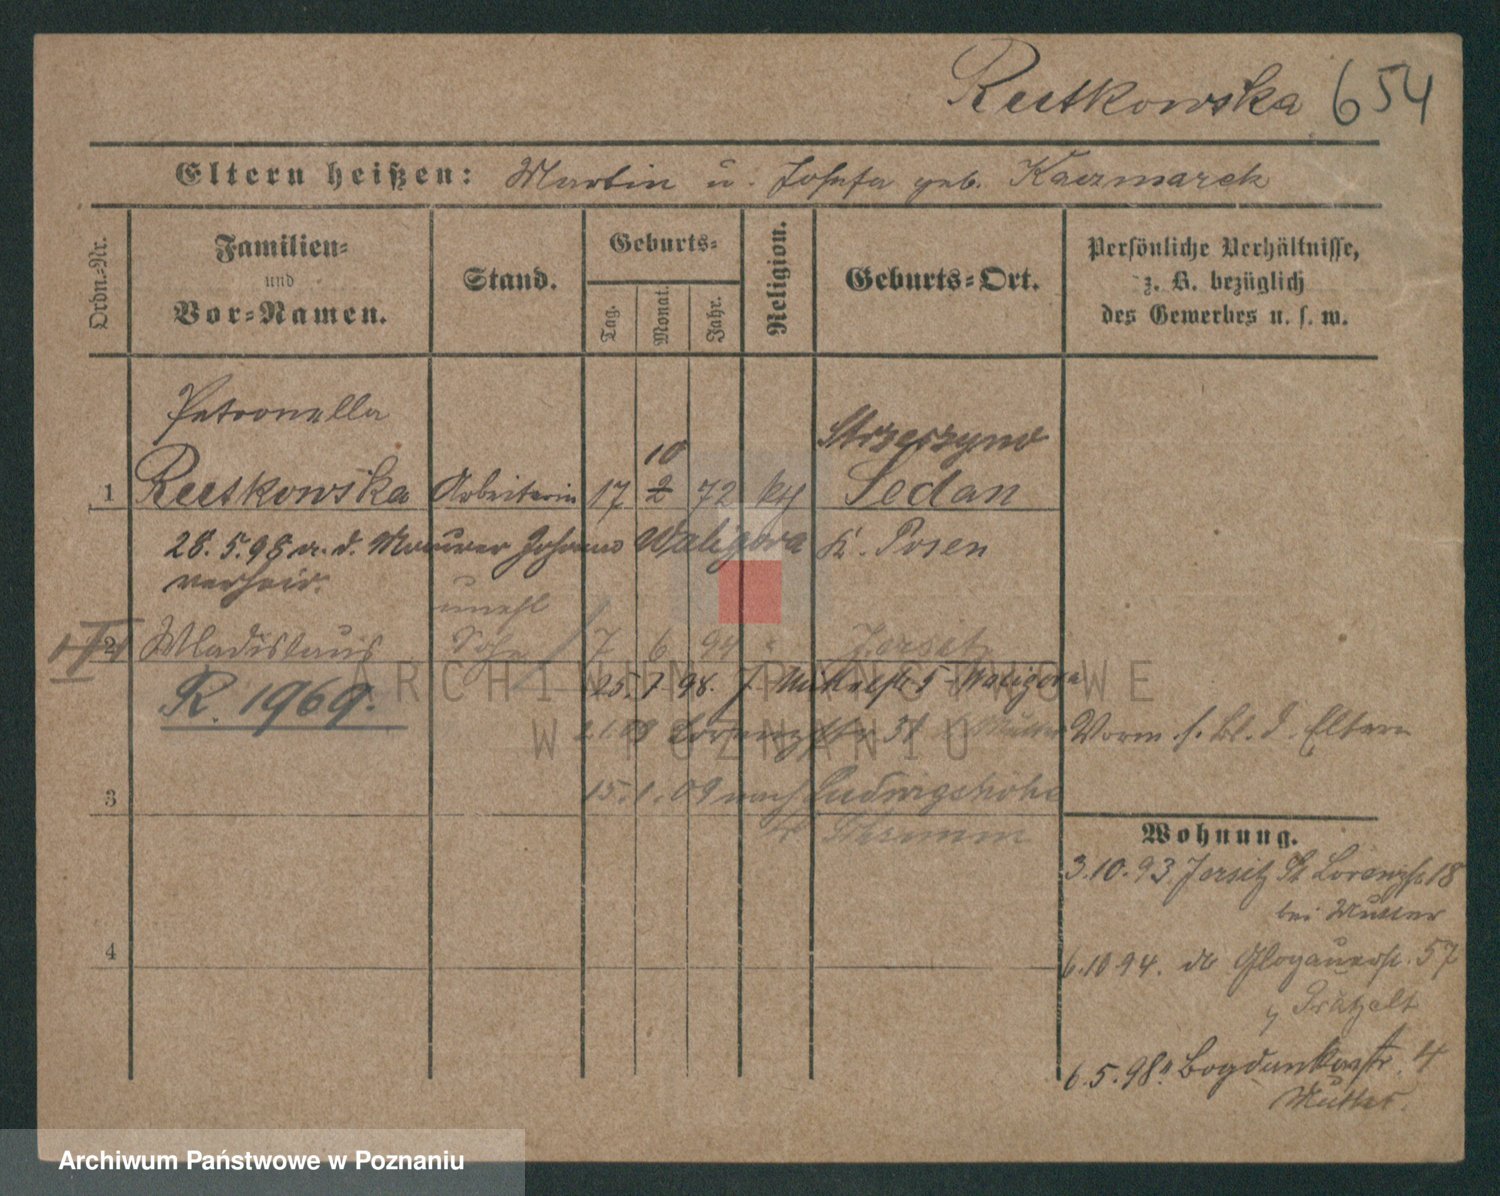 Rutkowska 654
Eltern heißen: Martin u. Josefa geb. Kaczmarek
Ordn.-Nr.
Familien-
und
Vor-Namen.
Stand.
Geburts-
Tag.
Monat.
Jahr.
Religion.
Geburts-Ort.
Persönliche Verhältnisse,
z. B. bezüglich
des Gewerbes u. s. w.
Petronella
10 Strzeszyno
1 Rutkowska Arbeiterin 17 2 72 Sedan
28.5.98 a. d. Maurer Johann Waligora K. Posen
verheir.
unehl
2 Wladislaus Sohn 7 6 94 " Jersitz
R. 1969.
25.7.98. 5 Waligora
Mutter
Vorm. s. Bl. d. Eltern
3 15.1.09 nach Ludwigshöhe
Wohnung.
3.10.93 Jersitz St Lorenzstr 18
bei Mutter
4
6.10 94. do Glogauerstr. 57
6.5.98 Bogdankastr. 4
Mutter.
ARCHIWUM PAŃSTWOWE
W POZNANIU
Archiwum Państwowe w Poznaniu